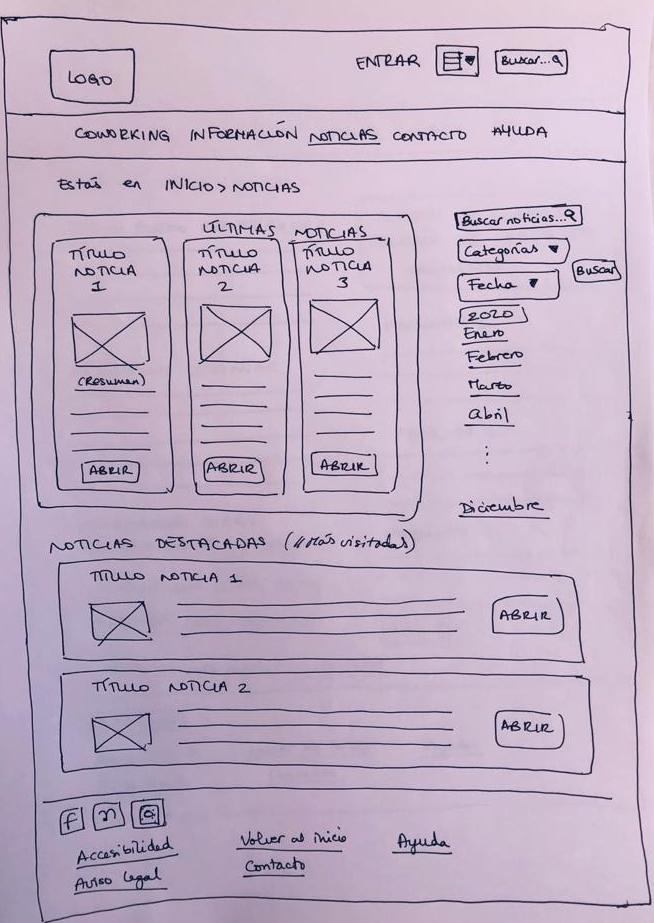 LOGO
ENTRAR
Buscar...
COWORKING INFORMACIÓN NOTICIAS CONTACTO AYUDA
Estás en INICIO > NOTICIAS
ÚLTIMAS NOTICIAS
TÍTULO
NOTICIA
1
(Resumen)
ABRIR
TÍTULO
NOTICIA
2
ABRIR
TÍTULO
NOTICIA
3
ABRIR
Buscar noticias...
Categorías
Fecha
Buscar
2020
Enero
Febrero
Marzo
Abril
Diciembre
NOTICIAS DESTACADAS (Más visitadas)
TÍTULO NOTICIA 1
ABRIR
TÍTULO NOTICIA 2
ABRIR
f
Accesibilidad
Aviso Legal
Volver al inicio
Contacto
Ayuda